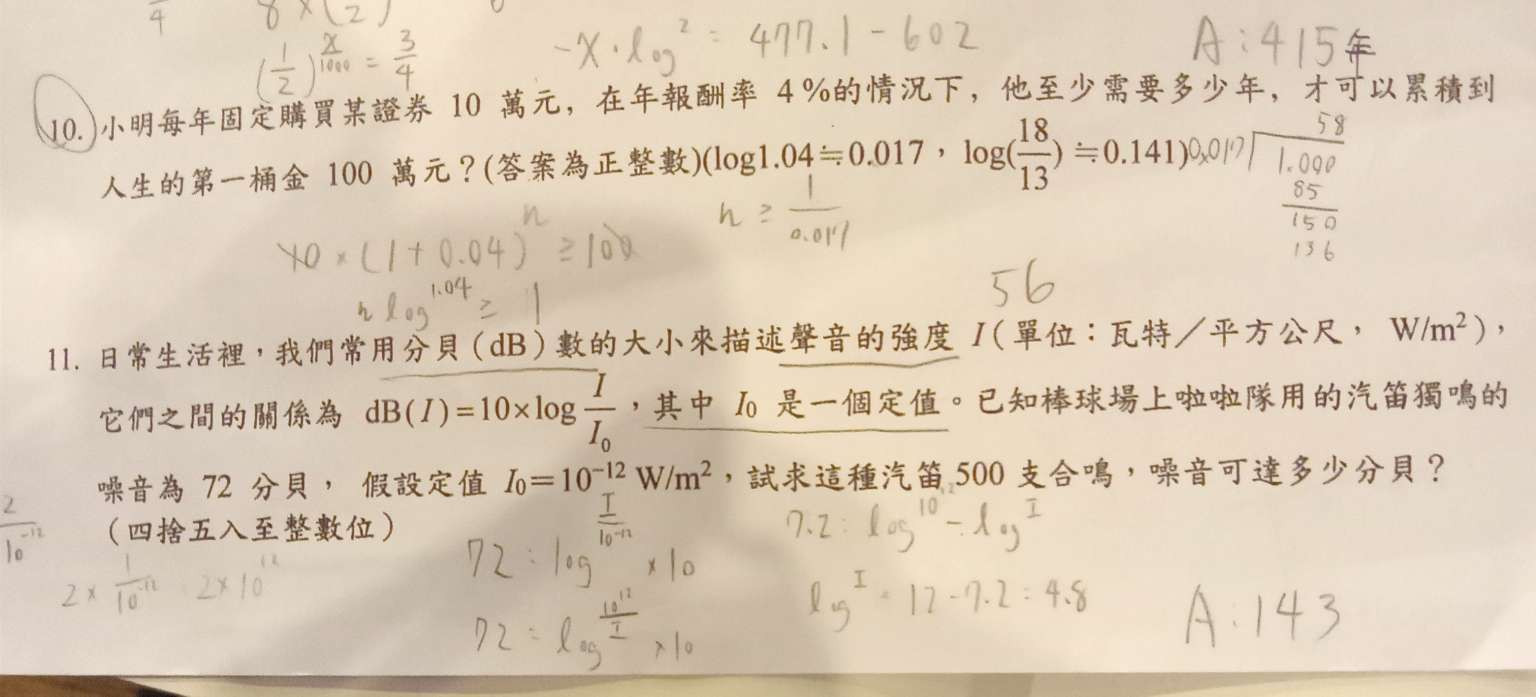 8×(1/2)
(1/2)^(x/1000) = 3/4
-x·log² = 477.1-602
A:415年
10. 小明每年固定購買某證券 10 萬元，在年報酬率 4%的情況下，他至少需要多少年，才可以累積到
人生的第一桶金 100 萬元？(答案為正整數)(log1.04≒0.017，log(18/13)≒0.141)
0.017 1.000
58
85
150
136
n ≥ 1/0.017
10×(1+0.04)^n ≥ 100
n log^1.04 ≥ 1
56
11. 日常生活裡，我們常用分貝（dB）數的大小來描述聲音的強度 I（單位：瓦特／平方公尺， W/m²），
它們之間的關係為 dB(I)=10×log I/I₀，其中 I₀ 是一個定值。已知棒球場上啦啦隊用的汽笛獨鳴的
噪音為 72 分貝， 假設定值 I₀=10⁻¹² W/m²，試求這種汽笛 500 支合鳴，噪音可達多少分貝？
（四捨五入至整數位）
2/10⁻¹²
2× 1/10⁻¹² 2×10¹²
72 = log^(I/10⁻¹²) ×10
72 = log^(10¹²/I) ×10
7.2 = log^10¹² - log^I
log^I = 12-7.2 = 4.8
A:143